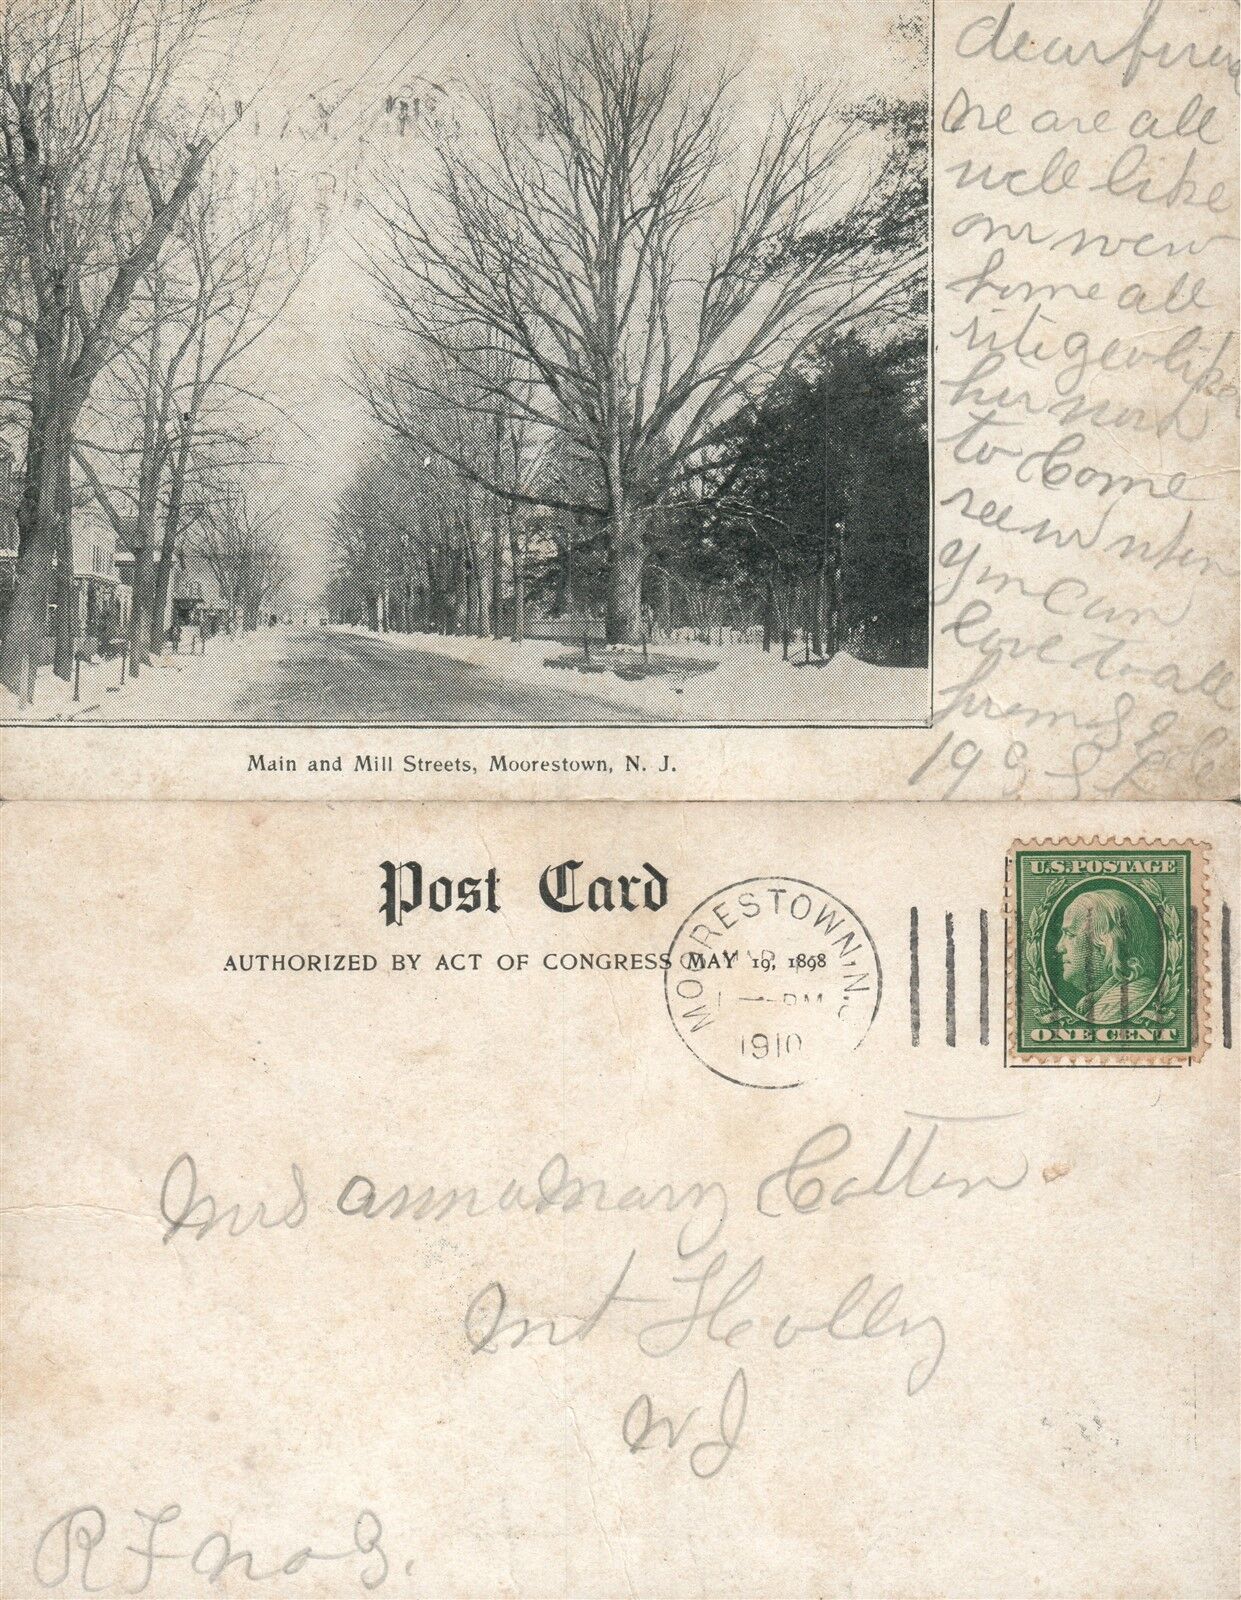 dear friend
we are all
well like
our new
home all
rite geo likes
her work
to Come
see us when
you can
love to all
from S
19
Main and Mill Streets, Moorestown, N. J.
Post Card
AUTHORIZED BY ACT OF CONGRESS MAY 19, 1898
MOORESTOWN, N.J.
MAR
1 - PM
1910
U.S. POSTAGE
ONE CENT
Mrs anna mary Cotten
Mt Holly
N J
R F no 3.